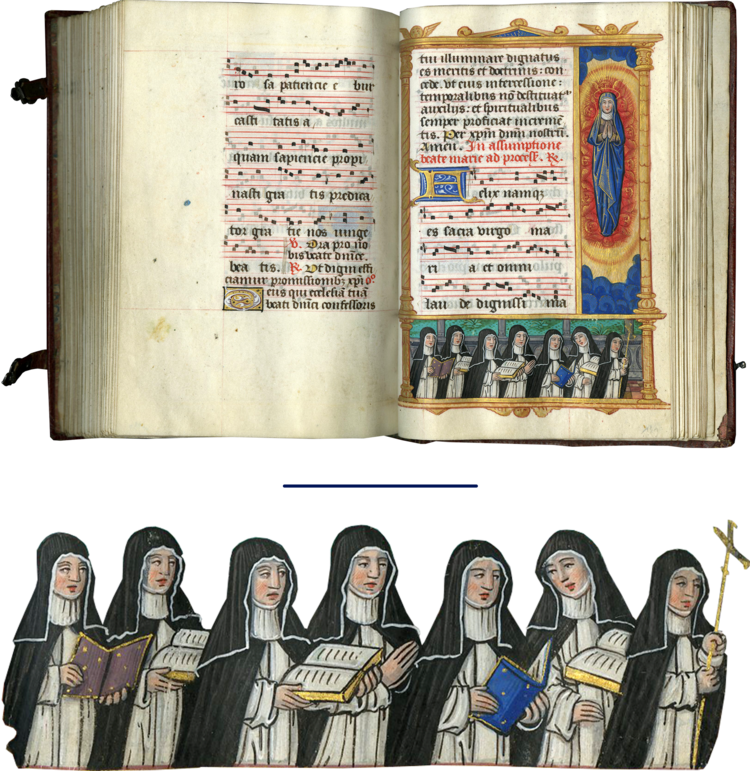 ro sa patiencie e bur
casti tatis a
quam sapiencie propi
nasti gra tis predica
tor gra tie nos iunge
v. Ora pro no
bis beate dnice.
bea tis. R. Vt digni effi
ciamur promissionibz xpi. o.
eus qui ecclesiā tuā
beati dnici confessoris
tui illuminare dignatus
es meritis et doctrinis: con
cede. vt eius intercessione:
temporalibus nō destituat
auxiliis: et spiritualibus
semper proficiat increme
tis. Per xpm dnm nostrū.
Amen. In assumptione
beate marie ad process. R.
elix namqz
es sacra virgo ma
ri a et omni
lau de dignissi ma